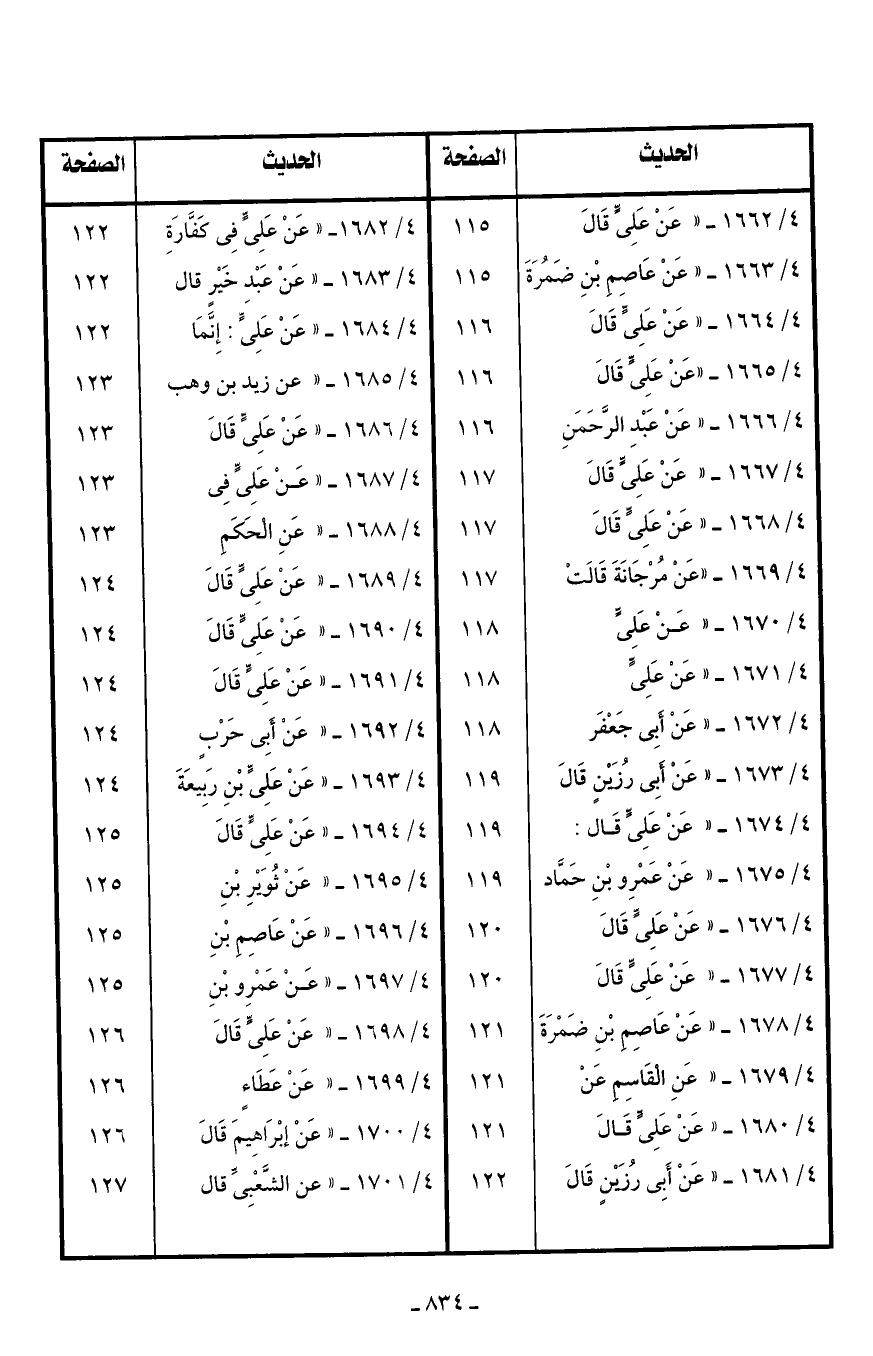 الحديث الصفحة الحديث الصفحة
٤/ ١٦٦٢ ـ « عَنْ عَلِىٍّ قَالَ ١١٥
٤/ ١٦٦٣ ـ « عَنْ عَاصِمِ بْنِ ضَمُرَةَ ١١٥
٤/ ١٦٦٤ ـ « عَنْ عَلِىٍّ قَالَ ١١٦
٤/ ١٦٦٥ ـ «عَنْ عَلِىٍّ قَالَ ١١٦
٤/ ١٦٦٦ ـ « عَنْ عَبْدِ الرَّحَمَنِ ١١٦
٤/ ١٦٦٧ ـ « عَنْ عَلِىٍّ قَالَ ١١٧
٤/ ١٦٦٨ ـ « عَنْ عَلِىٍّ قَالَ ١١٧
٤/ ١٦٦٩ ـ «عَنْ مُرْجَانَةَ قَالَتْ ١١٧
٤/ ١٦٧٠ ـ « عَـنْ عَلِىٍّ ١١٨
٤/ ١٦٧١ ـ « عَنْ عَلِىٍّ ١١٨
٤/ ١٦٧٢ ـ « عَنْ أَبِى جَعْفَر ١١٨
٤/ ١٦٧٣ ـ « عَنْ أَبِى رُزَيْنٍ قَالَ ١١٩
٤/ ١٦٧٤ ـ « عَنْ عَلِىٍّ قَـال : ١١٩
٤/ ١٦٧٥ ـ « عَنْ عَمْرِو بْنِ حَمَّاد ١١٩
٤/ ١٦٧٦ ـ « عَنْ عَلِىٍّ قَالَ ١٢٠
٤/ ١٦٧٧ ـ « عَنْ عَلِىٍّ قَالَ ١٢٠
٤/ ١٦٧٨ ـ « عَنْ عَاصِمِ بْنِ ضَمْرَةَ ١٢١
٤/ ١٦٧٩ ـ « عَنِ الْقَاسِمِ عَنْ ١٢١
٤/ ١٦٨٠ ـ « عَنْ عَلِىٍّ قَـالَ ١٢١
٤/ ١٦٨١ ـ « عَنْ أَبِى رُزَيْنٍ قَالَ ١٢٢
٤/ ١٦٨٢ـ « عَنْ عَلِىٍّ فِى كَفَّارَةِ ١٢٢
٤/ ١٦٨٣ ـ « عَنْ عَبْدِ خَيْرٍ قال ١٢٢
٤/ ١٦٨٤ ـ « عَنْ عَلِىٍّ : إِنَّمَا ١٢٢
٤/ ١٦٨٥ ـ « عن زيد بن وهب ١٢٣
٤/ ١٦٨٦ ـ « عَنْ عَلِىٍّ قَالَ ١٢٣
٤/ ١٦٨٧ ـ « عَـنْ عَلِىٍّ فِى ١٢٣
٤/ ١٦٨٨ ـ « عَنِ الْحَكَمِ ١٢٣
٤/ ١٦٨٩ ـ « عَنْ عَلِىٍّ قَالَ ١٢٤
٤/ ١٦٩٠ ـ « عَنْ عَلِىٍّ قَالَ ١٢٤
٤/ ١٦٩١ ـ « عَنْ عَلِىٍّ قَالَ ١٢٤
٤/ ١٦٩٢ ـ « عَنْ أَبِى حَرْبٍ ١٢٤
٤/ ١٦٩٣ ـ « عَنْ عَلِىٍّ بْنِ رَبِيعَةَ ١٢٤
٤/ ١٦٩٤ ـ « عَنْ عَلِىٍّ قَالَ ١٢٥
٤/ ١٦٩٥ ـ « عَنْ ثُوَيْرِ بْنِ ١٢٥
٤/ ١٦٩٦ ـ « عَنْ عَاصِمِ بْنِ ١٢٥
٤/ ١٦٩٧ ـ « عَـنْ عَمْرِو بْنِ ١٢٥
٤/ ١٦٩٨ ـ « عَنْ عَلِىٍّ قَالَ ١٢٦
٤/ ١٦٩٩ ـ « عَنْ عَطَاءٍ ١٢٦
٤/ ١٧٠٠ ـ « عَنْ إِبْرَاهِيمَ قَالَ ١٢٦
٤/ ١٧٠١ ـ « عن الشَّعْبِىِّ قال ١٢٧
ـ ٨٣٤ ـ